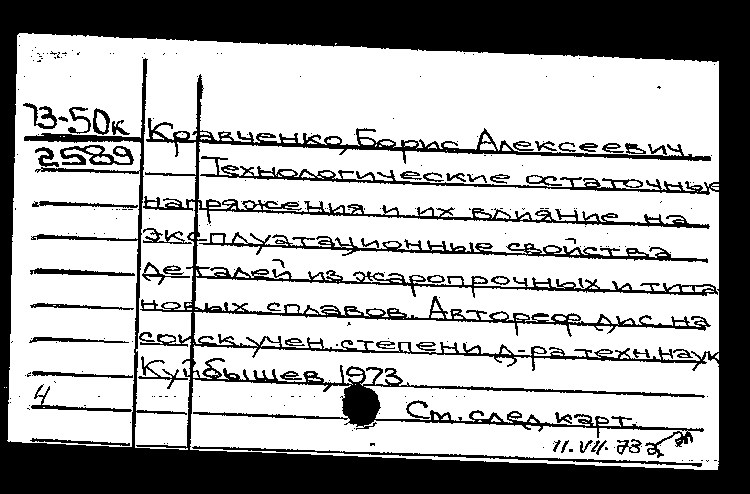 73-50к
2589
Кравченко, Борис Алексеевич.
Технологические остаточные
напряжения и их влияние на
эксплуатационные свойства
деталей из жаропрочных и тита-
новых сплавов. Автореф. дис. на
соиск. учен. степени д-ра техн. наук
Куйбышев, 1973.
4
См. след. карт.
11.VII.73г